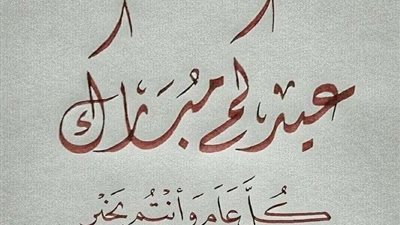 عيدكم مُبَارَك
كُلَّ عَامٍ وَأَنْتُمْ بِخَيْرٍ